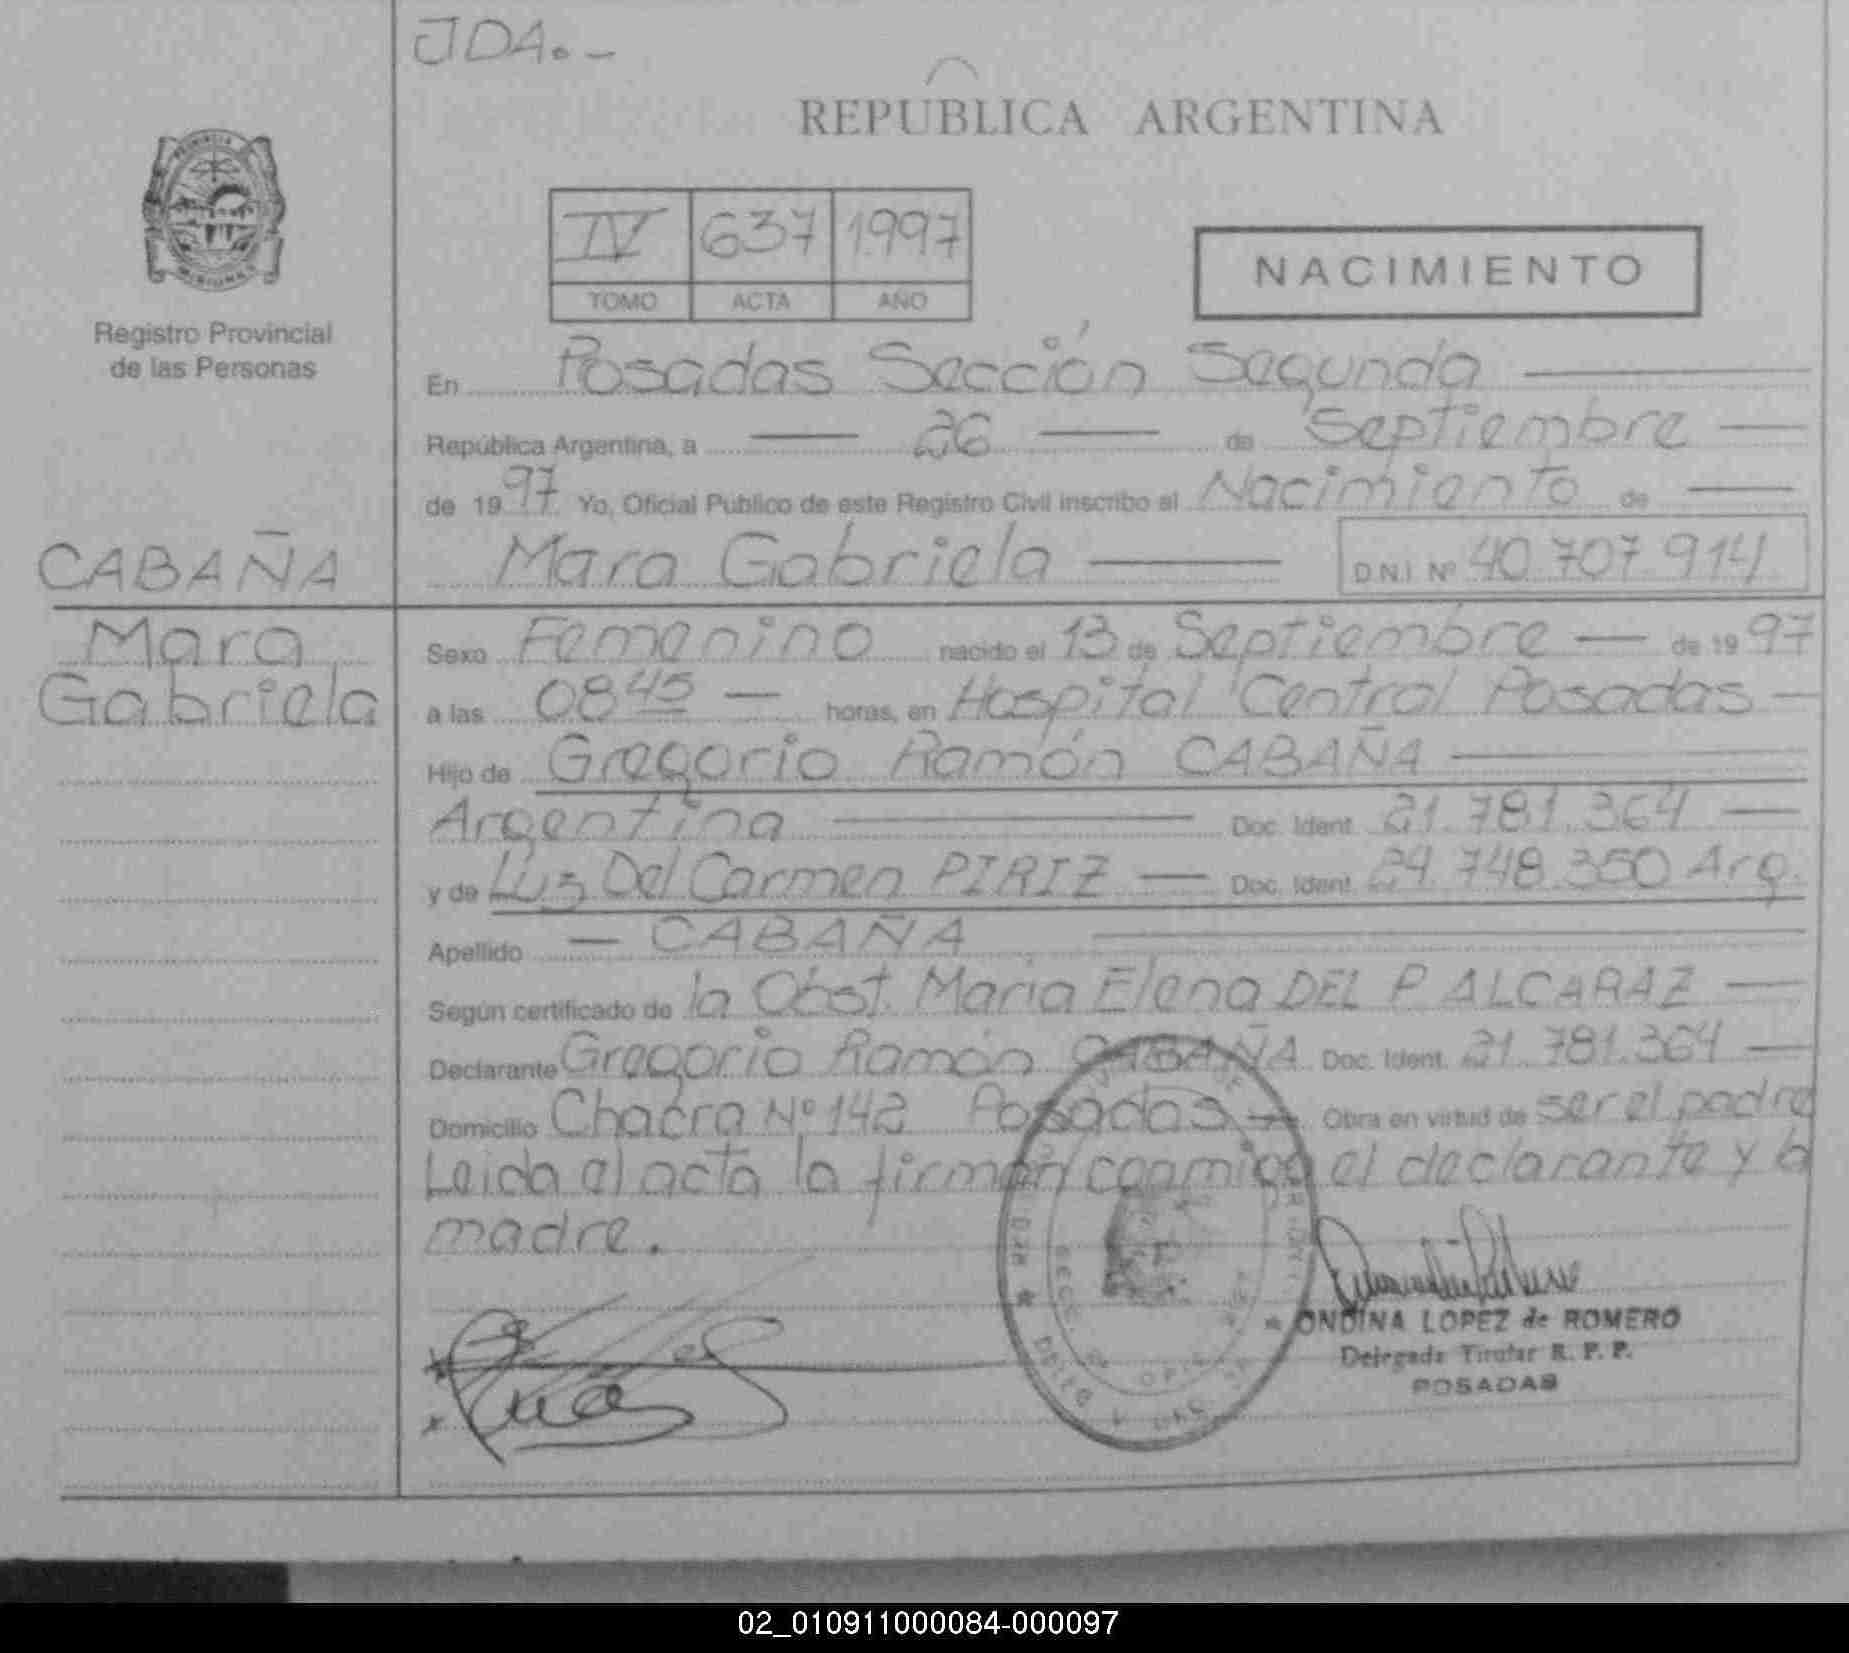 JDA.-
REPUBLICA ARGENTINA
IV 637 1997
TOMO ACTA AÑO
NACIMIENTO
PROVINCIA
MISIONES
Registro Provincial
de las Personas
En Posadas Sección Segunda
República Argentina, a 26 de Septiembre
de 1997 Yo, Oficial Público de este Registro Civil inscribo el Nacimiento de
CABAÑA
Mara Gabriela D.N.I. Nº 40.707.914
Mara
Gabriela
Sexo Femenino nacido el 13 de Septiembre de 1997
a las 08 45 horas, en Hospital Central Posadas
Hijo de Gregorio Ramón CABAÑA
Argentina Doc. Ident. 21.781.364
y de Luz Del Carmen PIRIZ Doc. Ident. 24.748.350 Arg.
Apellido CABAÑA
Según certificado de la Obst. María Elena DEL P ALCARAZ
Declarante Gregorio Ramón CABAÑA Doc. Ident. 21.781.364
Domicilio Chacra Nº 142 Posadas Obra en virtud de ser el padre
Leida el acta la firman conmigo el declarante y la
madre.
ONDINA LOPEZ de ROMERO
Delegada Titular R. P. P.
POSADAS
02_010911000084-000097